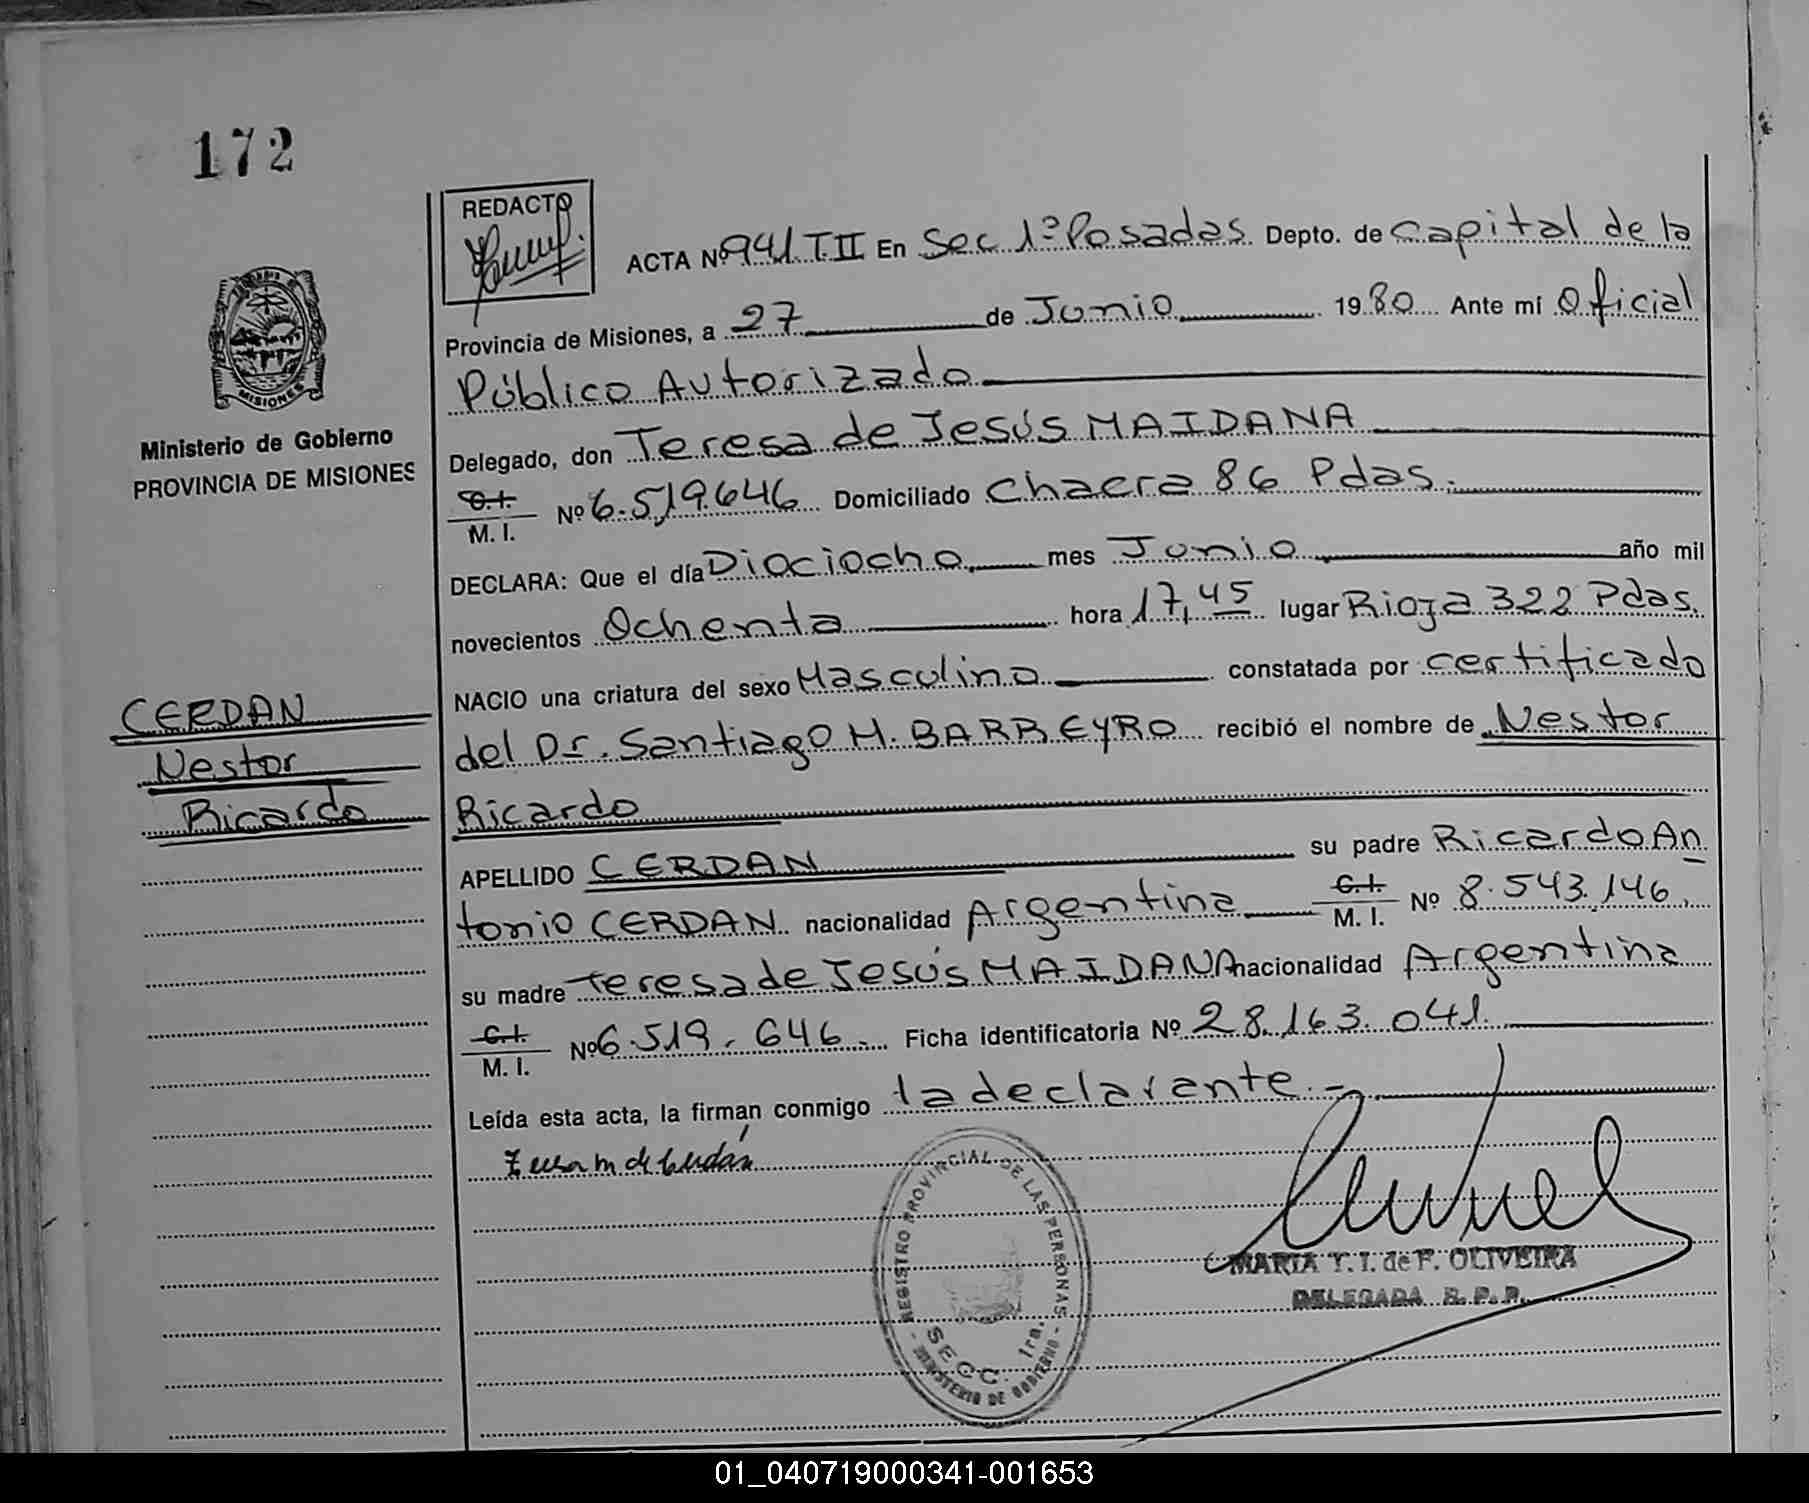 172
REDACTO
ACTA Nº 941 T.II En Sec 1ª Posadas Depto. de Capital de la
Provincia de Misiones, a 27 de Junio 1980 Ante mí Oficial
Público Autorizado
Delegado, don Teresa de Jesús MAIDANA
C.I.
M. I. Nº 6.519.646 Domiciliado Chacra 86 Pdas.
DECLARA: Que el día Diociocho mes Junio año mil
novecientos Ochenta hora 17,45 lugar Rioja 322 Pdas.
NACIO una criatura del sexo Masculino constatada por certificado
del Dr. Santiago M. BARREYRO recibió el nombre de Nestor
Ricardo
APELLIDO CERDAN su padre Ricardo An
tonio CERDAN nacionalidad Argentina C.I.
M. I. Nº 8.543.146,
su madre Teresa de Jesús MAIDANA nacionalidad Argentina
C.I.
M. I. Nº 6.519.646 Ficha identificatoria Nº 28.163.041.
Leída esta acta, la firman conmigo la declarante.-
MISIONES
Ministerio de Gobierno
PROVINCIA DE MISIONES
CERDAN
Nestor
Ricardo
REGISTRO PROVINCIAL DE LAS PERSONAS
SECC. 1ra.
- MINISTERIO DE GOBIERNO -
MARIA T. I. de F. OLIVEIRA
DELEGADA R. P. P.
01_040719000341-001653